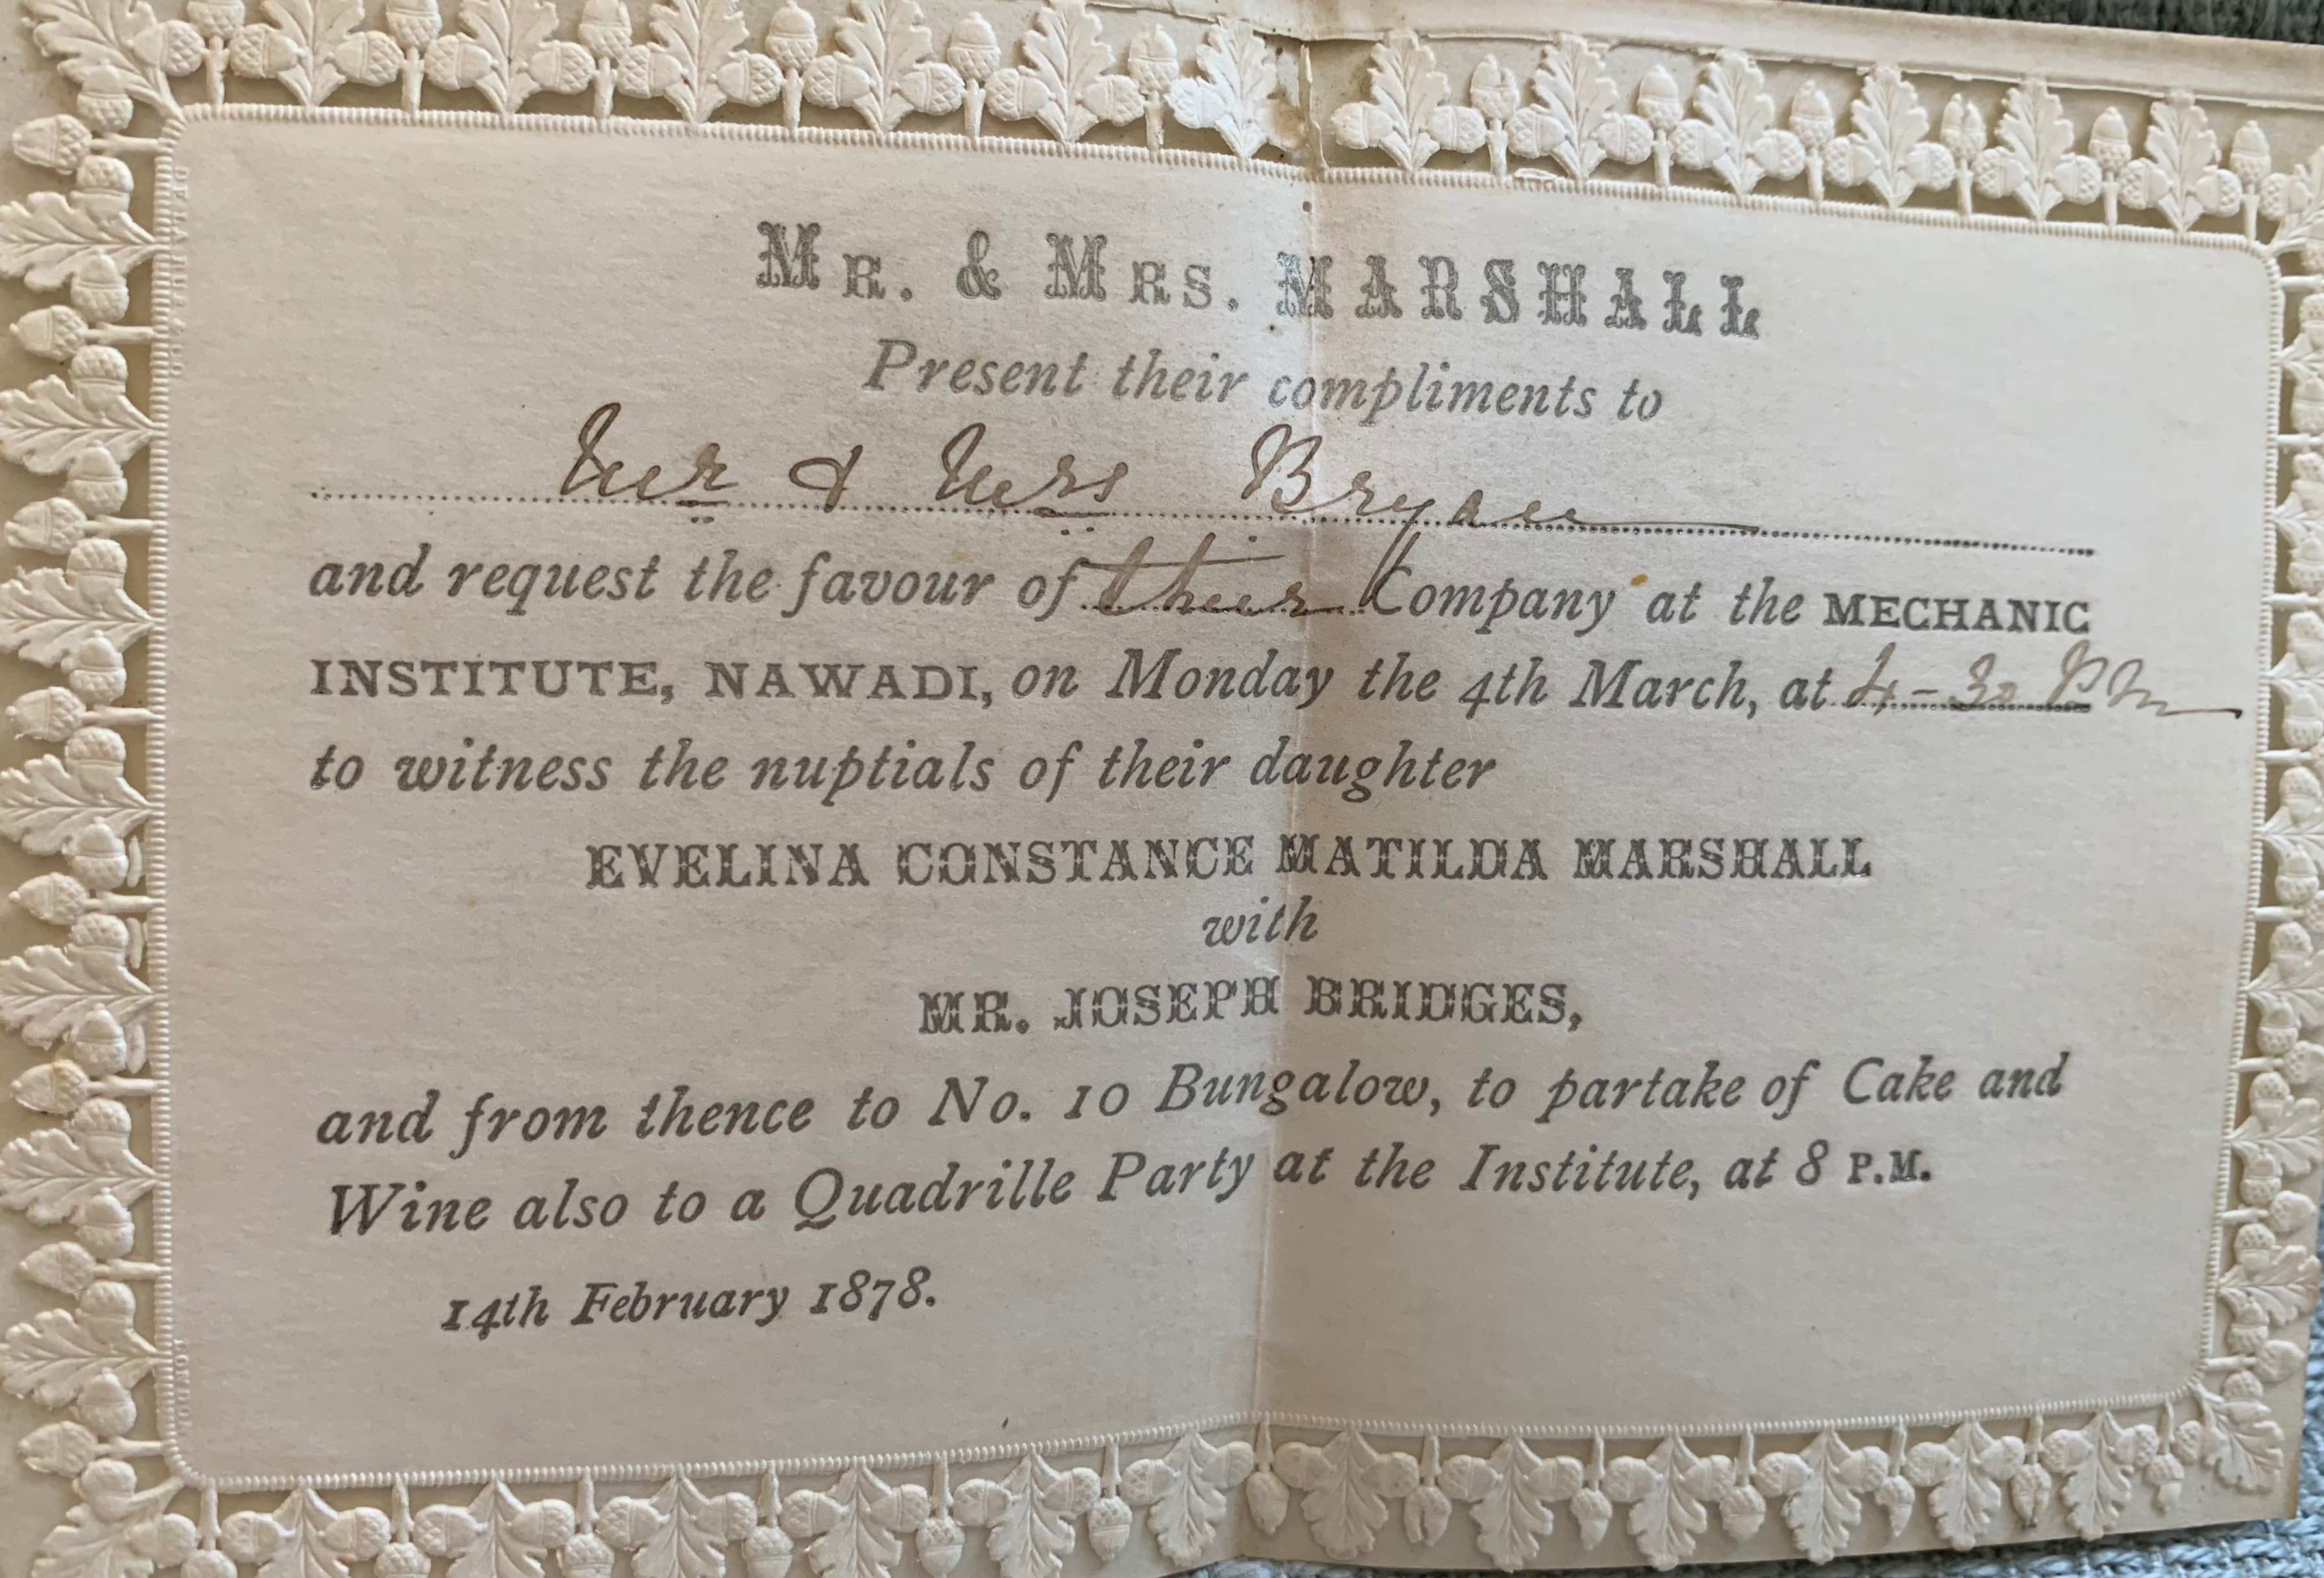 MR. & MRS. MARSHALL
Present their compliments to
Mr & Mrs Bryan
and request the favour of their Company at the MECHANIC
INSTITUTE, NAWADI, on Monday the 4th March, at 4-30 PM
to witness the nuptials of their daughter
EVELINA CONSTANCE MATILDA MARSHALL
with
MR. JOSEPH BRIDGES,
and from thence to No. 10 Bungalow, to partake of Cake and
Wine also to a Quadrille Party at the Institute, at 8 P.M.
14th February 1878.